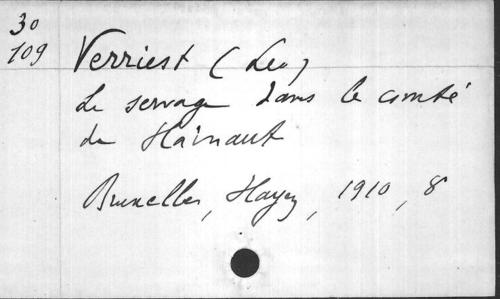 30
109
Verriest (Leo)
Le servage dans le comté
de Hainaut
Bruxelles, Hayez, 1910, 8